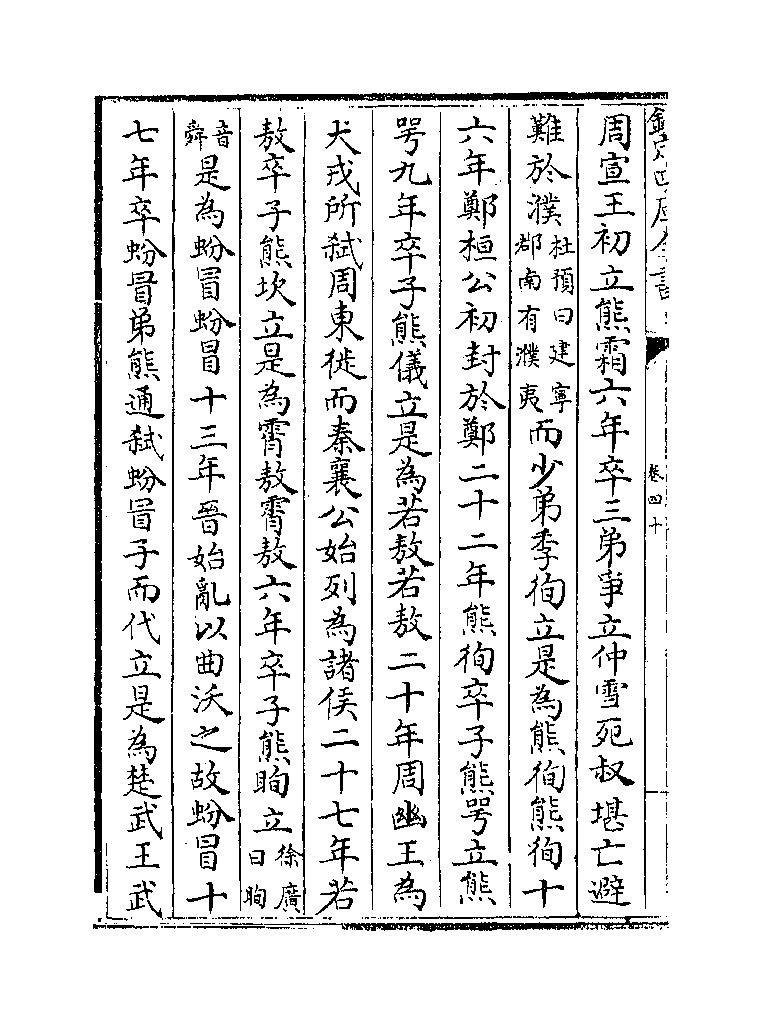 欽定四庫全書
卷四十
周宣王初立熊霜六年卒三弟爭立仲雪死叔堪亡避
難於濮杜預曰建寧郡南有濮夷而少弟季徇立是為熊徇熊徇十
六年鄭桓公初封於鄭二十二年熊徇卒子熊咢立熊
咢九年卒子熊儀立是為若敖若敖二十年周幽王為
犬戎所弑周東徙而秦襄公始列為諸侯二十七年若
敖卒子熊坎立是為霄敖霄敖六年卒子熊眴立徐廣曰眴
音舜是為蚡冒蚡冒十三年晉始亂以曲沃之故蚡冒十
七年卒蚡冒弟熊通弑蚡冒子而代立是為楚武王武